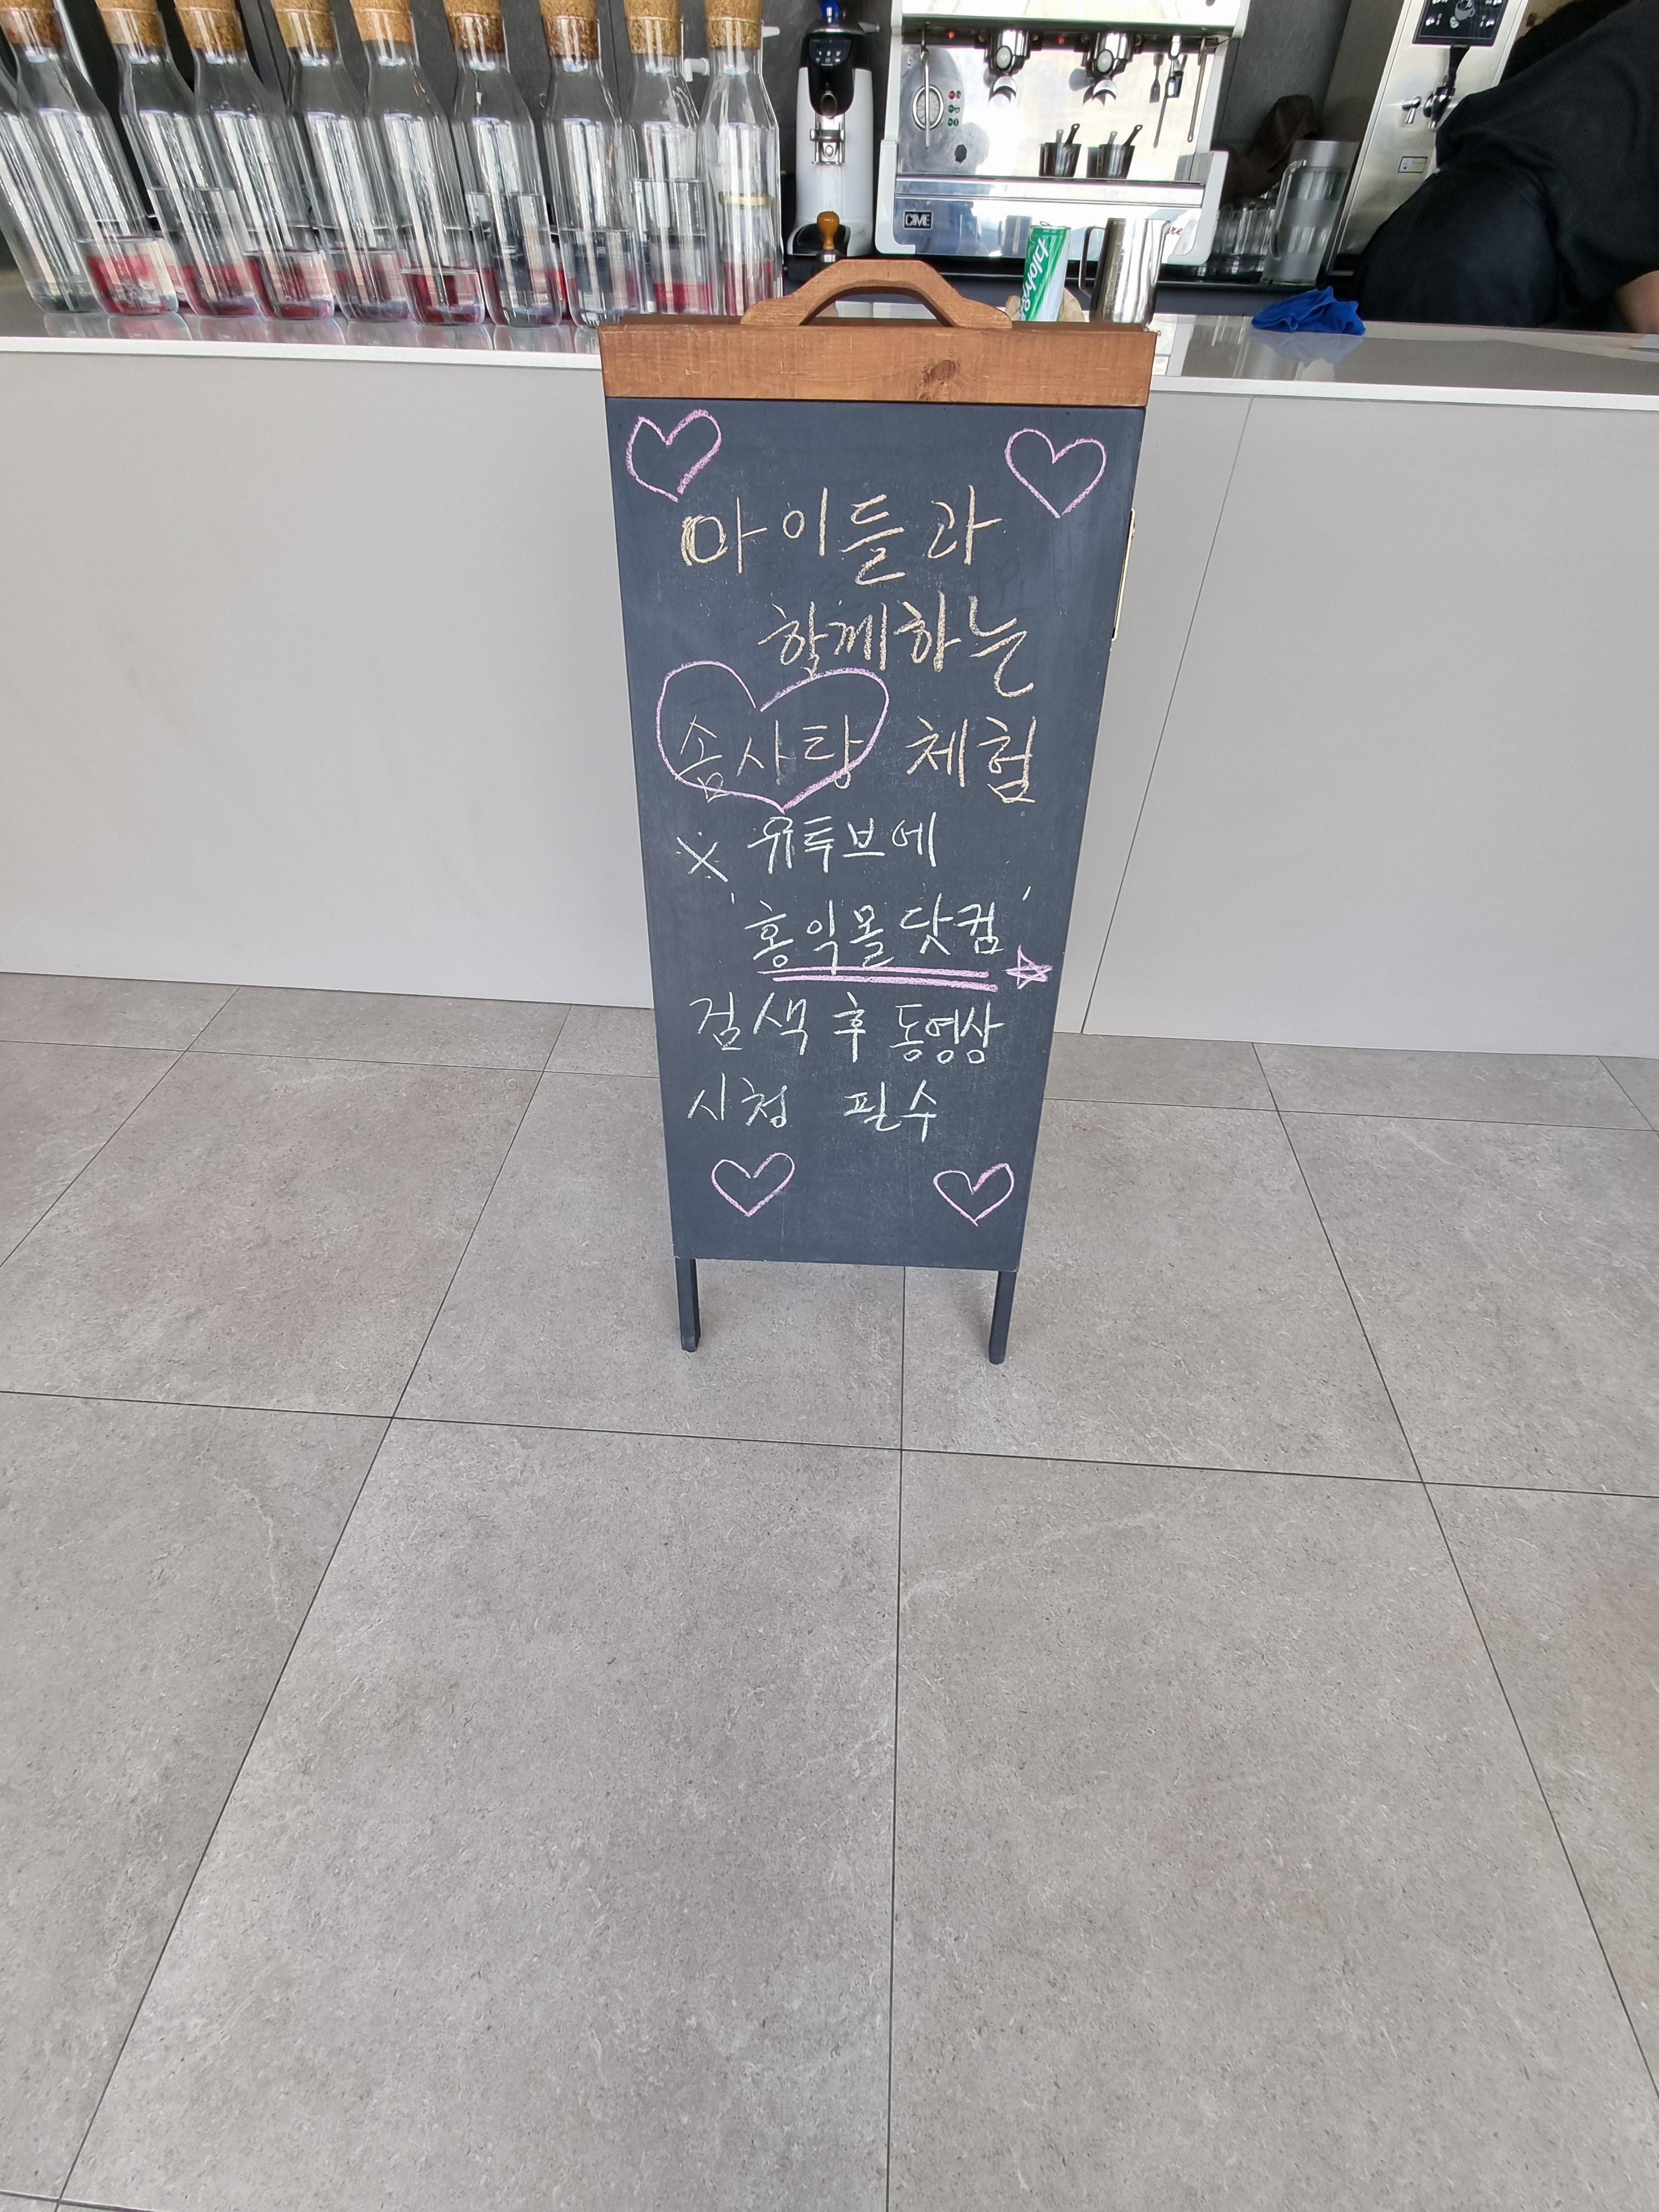 CIME
마이들과
함께하는
솜사탕 체험
※ 유투브에
'홍익몰닷컴'
검색 후 동영상
시청 필수